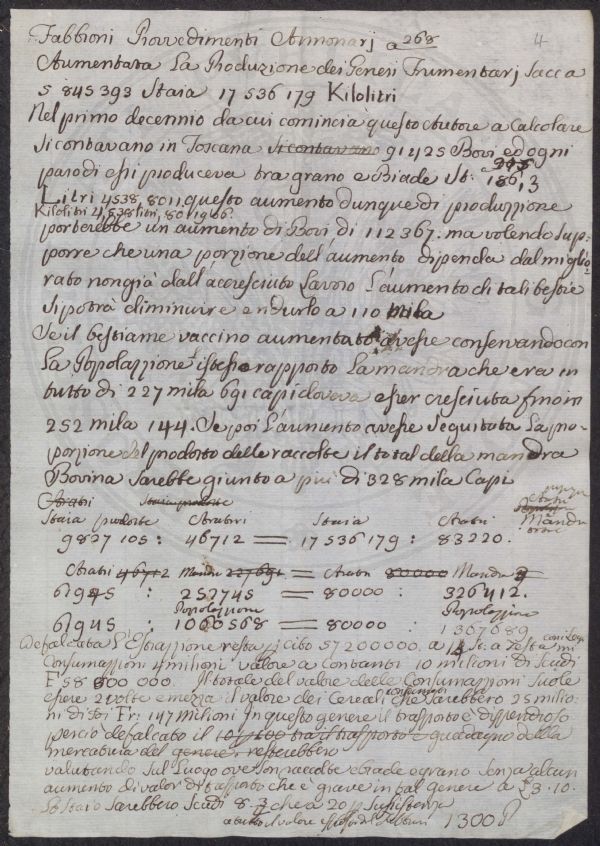 Fabbroni Provvedimenti Annonarj a 268
4
Aumentata La Produzione dei Generi Frumentarj Sacca
5 845 393 Staia 17 536 179 Kilolitri
Nel primo decennio da cui comincia questo Autore a Calcolare
Si contavano in Toscana Si contavano 91425 Bovi ed ogni
par di essi produceva tra grano e Biade St. 215
186,3
Litri 4538,8011 questo aumento dunque di produzzione
Kilolitri 4,538 litri, 801966.
porterebbe un aumento di Bovi di 112367. ma volendo sup-
porre che una porzione dell'aumento dipenda dal miglio-
rato non già dall'accresciuto Lavoro L'aumento di tali bestie
Si potrà diminuire e ridurlo a 110 mila
Se il bestiame vaccino aumentato avesse conservando con
La Popolazzione istesso rapporto La mandra che era in
tutto di 227 mila 691 capi doveva esser cresciuta fino in
252 mila 144. Se poi L'aumento avesse Seguitata La pro-
porzione del prodotto delle raccolte il total della mandra
Bovina Sarebbe giunto a più di 328 mila Capi
Aratri Staia prodotte
Staia prodotte Aratri Staia Aratri Mandra
9827105 : 46712 = 17 536 179 : 83220.
Aratri 46712 Mandra 227691 = Aratri 80000 Mandra
61945 : 252745 = 80000 : 326412.
Popolazzione Popolazzione
61945 : 1060568 = 80000 : 1367689
Defalcata L'Estrazzione resta di cibo 57200000. a 14 St. a testa
Consumazzioni 4 milioni valore a Contanti 10 milioni di Scudi
F. 58 800 000. Il totale del valore delle Consumazzioni Suole
essere 2 volte e mezza il valore dei Cereali consumati che Sarebbero 25 milio-
ni di Fr: 147 milioni In questo genere il trasporto è dispendioso
perciò defalcato il trasporto e guadagno della
mercatura del genere. resterebbero
valutando Sul Luogo ove Son raccolte e biade o grano Senza alcun
aumento di valor di trasporto che è grave in tal genere a £ 3.10.
Lo Staio Sarebbero Scudi 8 che a 20 p
a tutto il valore 1300